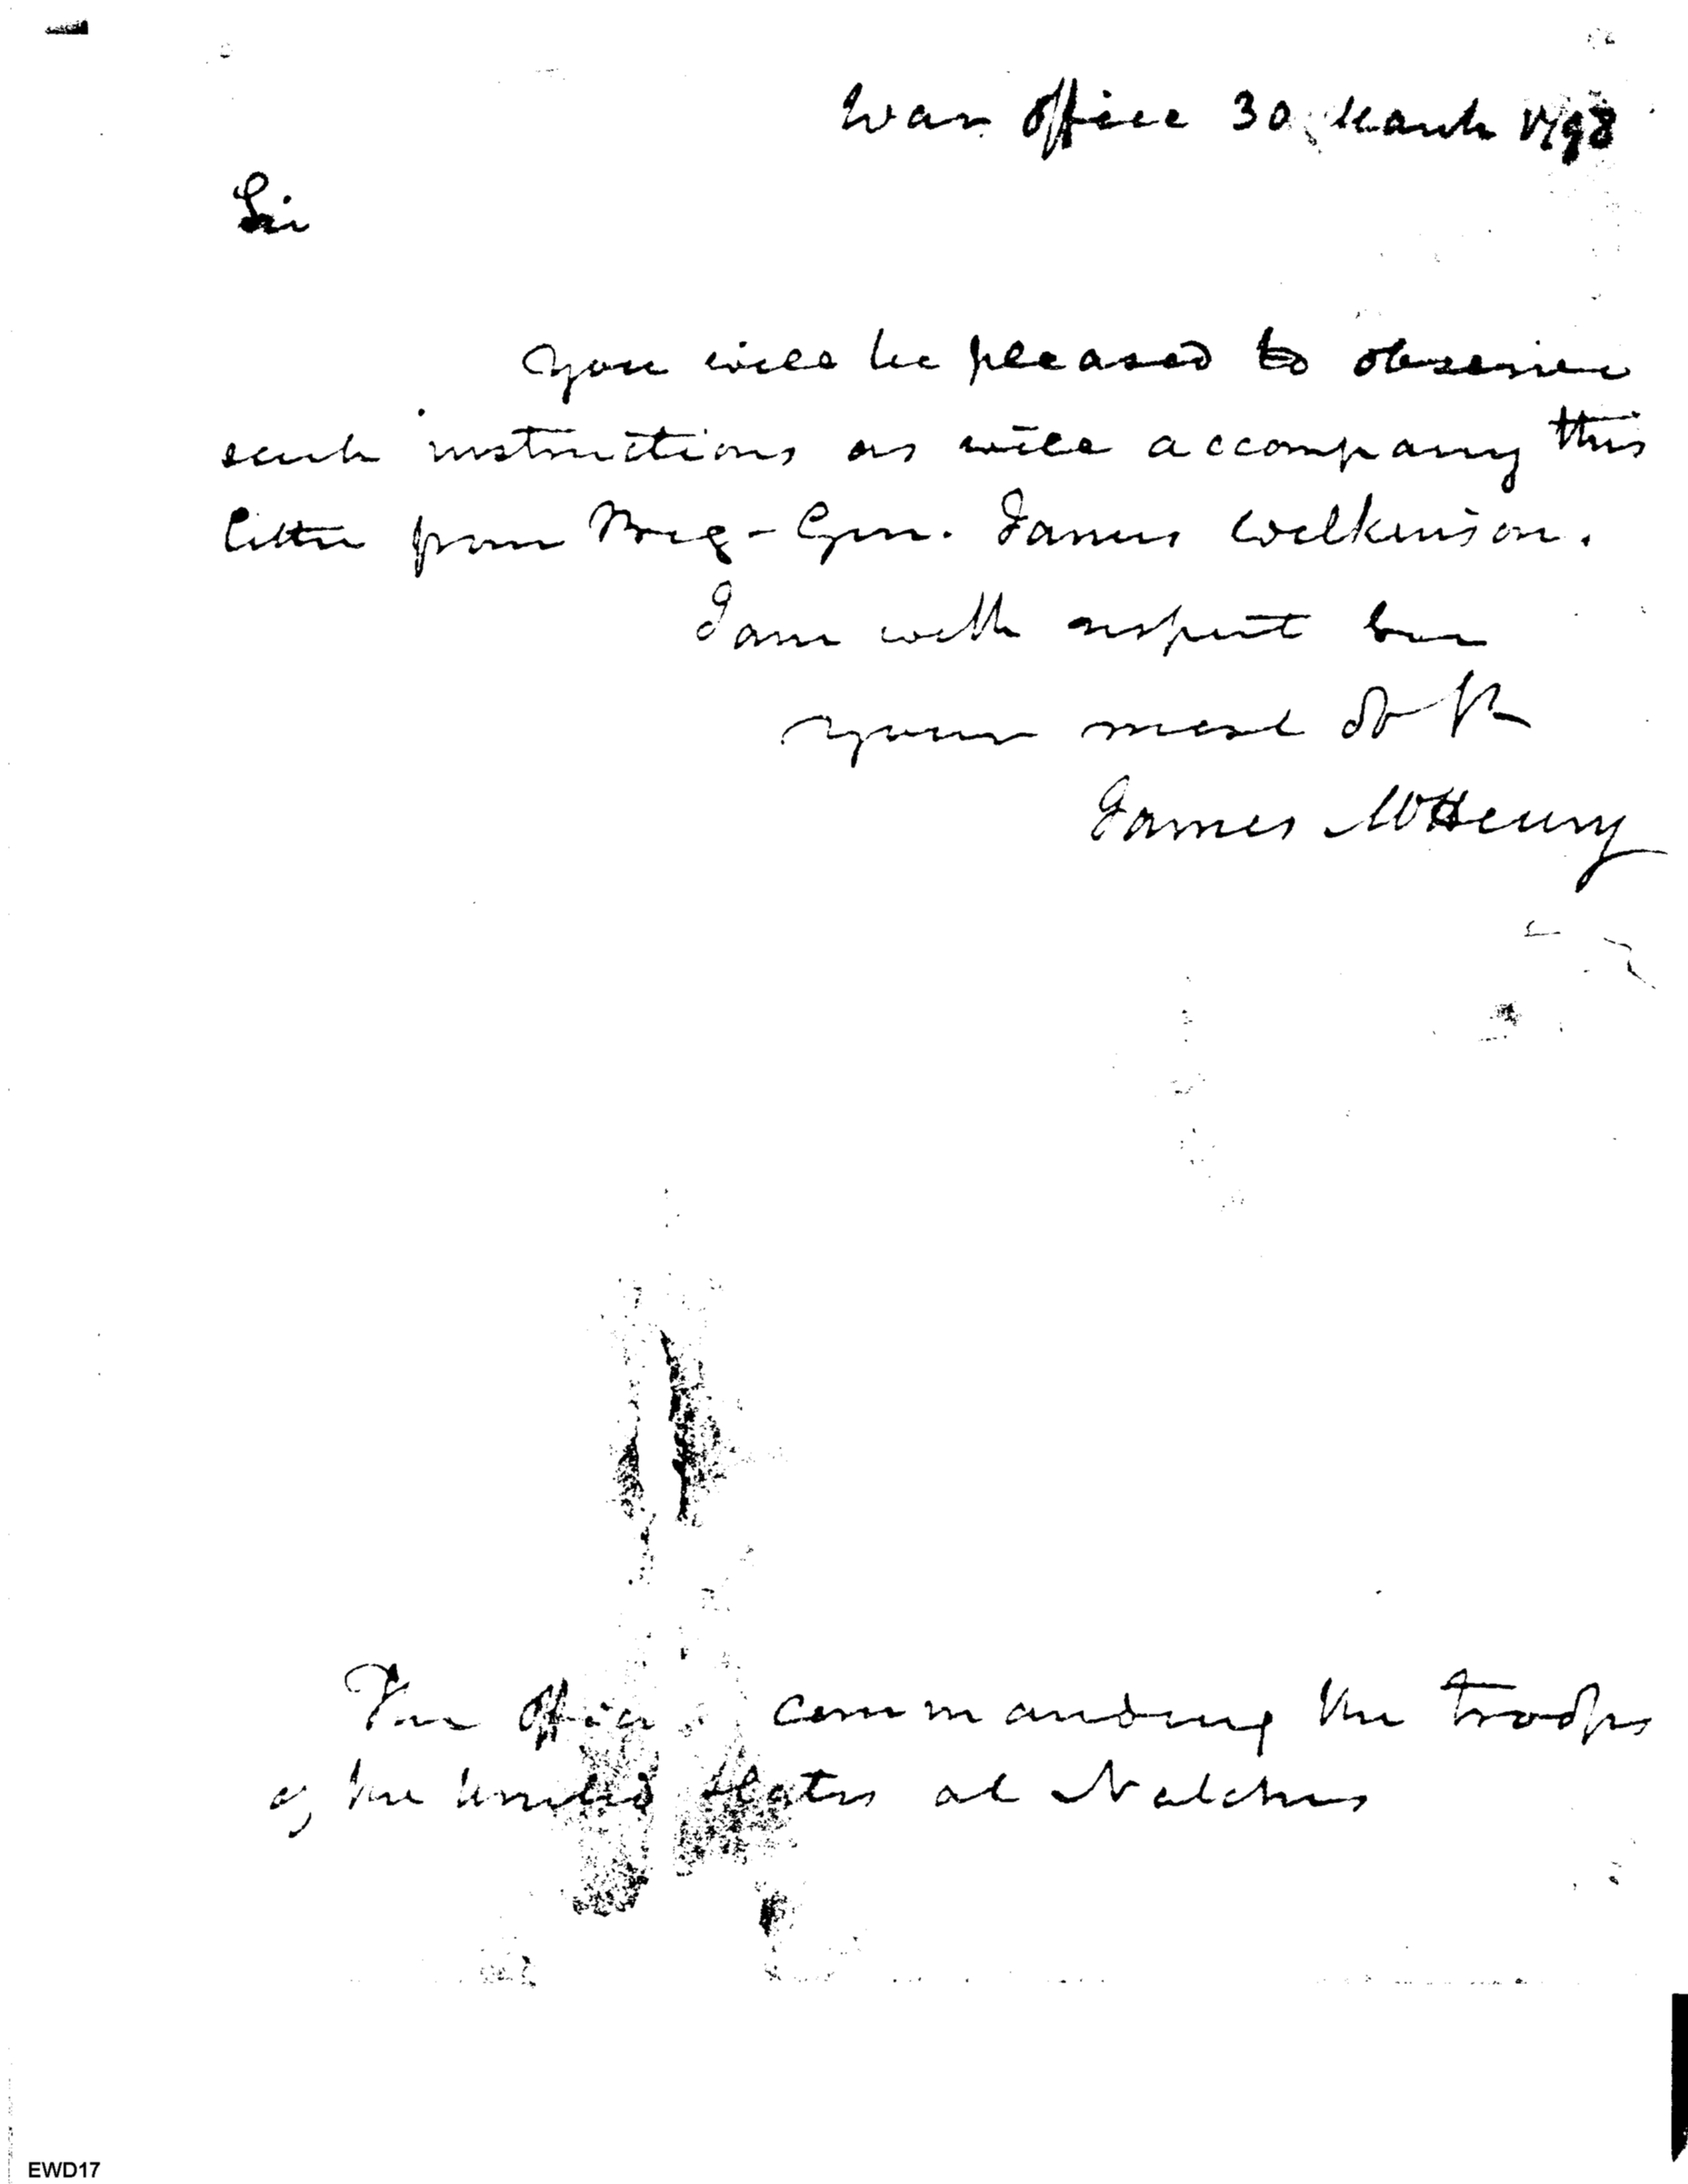 War office 30 March 1798
Sir
You will be pleased to observe
such instructions as will accompany this
letter from Brig-Gen. James Wilkinson.
I am with respect
your most ob st
James McHenry
The officer commanding the troops
of the United States at Natches
EWD17